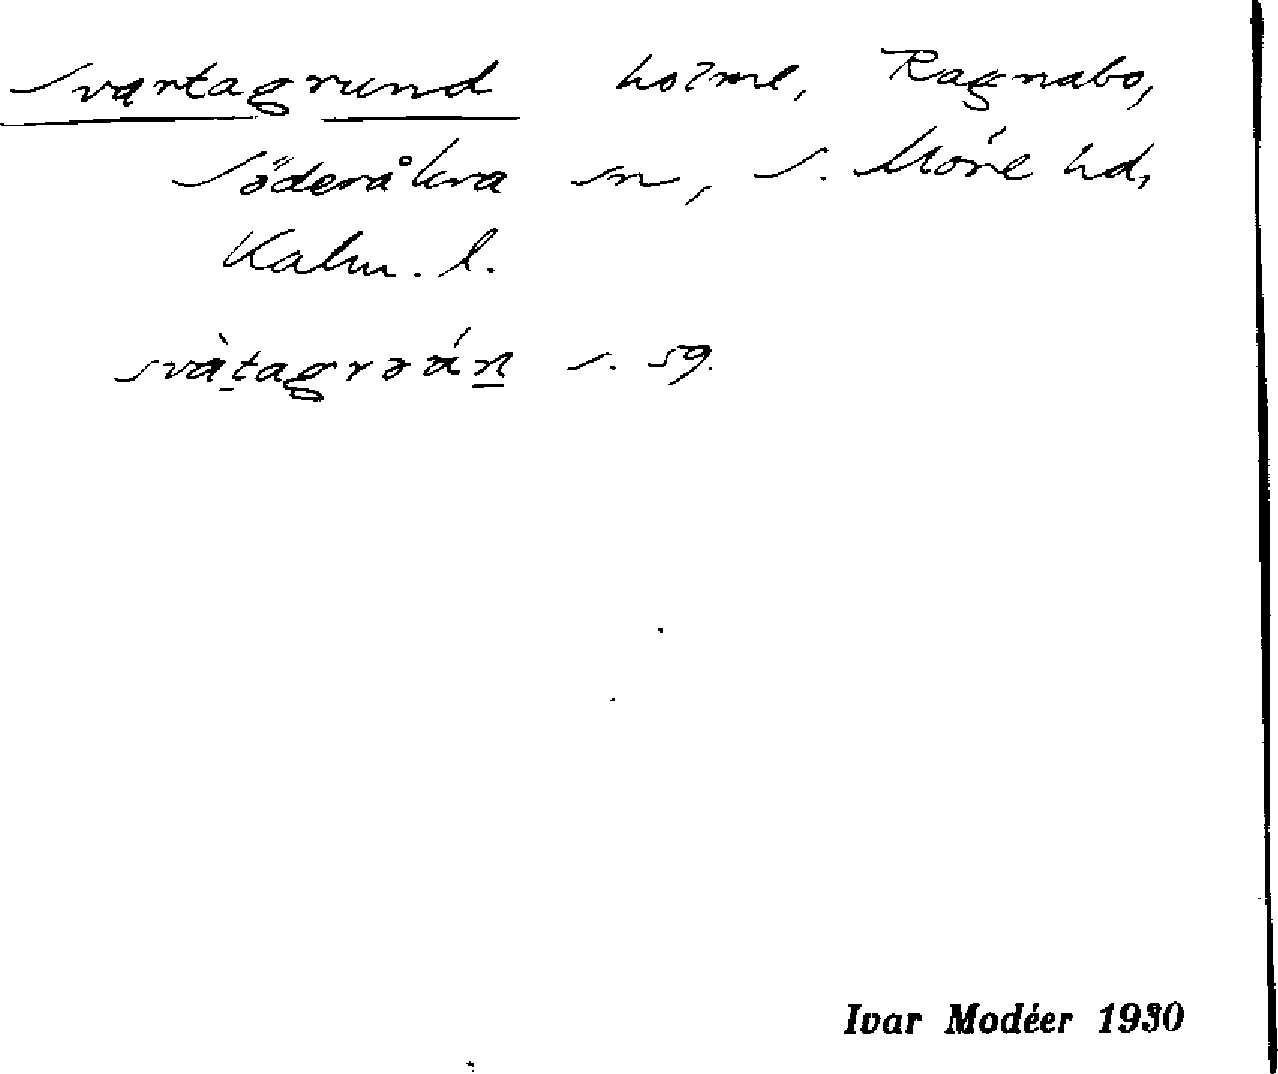 Svartagrund holme, Ragnabo,
Söderåkra sn, S. Möre hd,
Kalm. l.
svàtagrǝán s. 59.
Ivar Modéer 1930